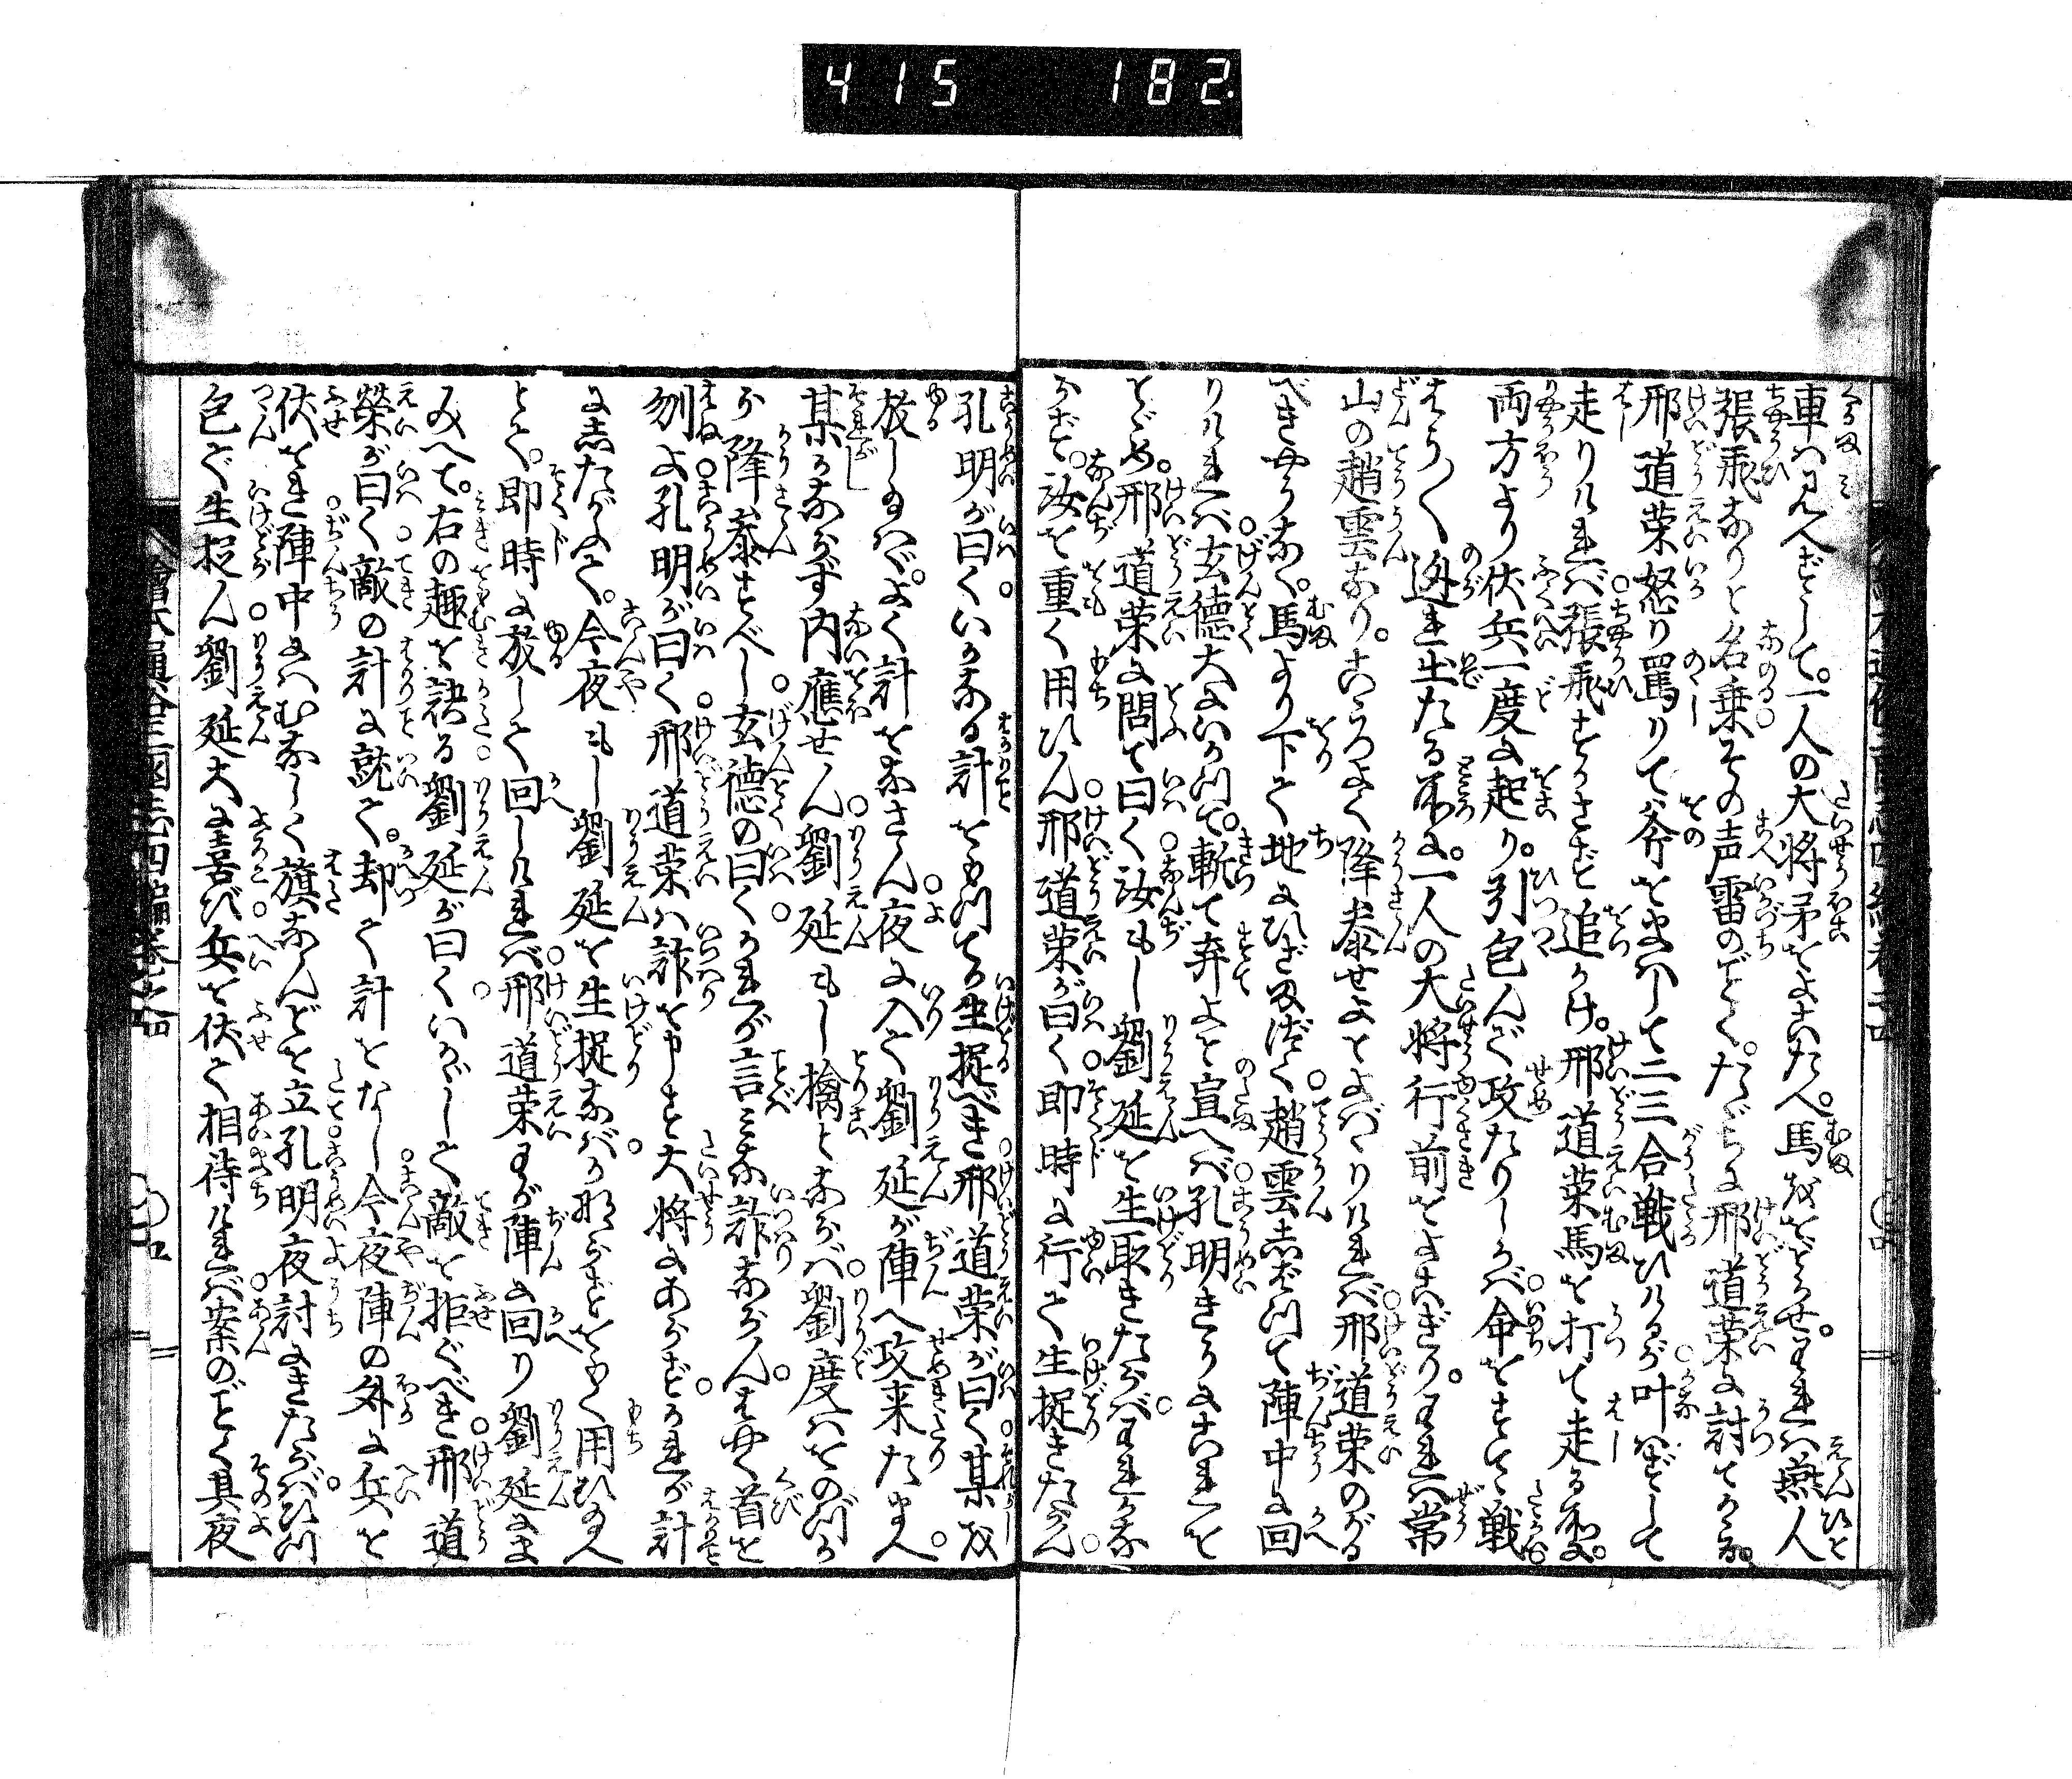 415 182
車ハ見へずして。一人の大将矛をよこたへ。馬をおどらせ。われハ燕人
張飛なりと名乗その声雷のごとく。たゞちに邢道荣に討てかゝる。
邢道荣怒り罵りて斧をまハして二三合戦ひけるが叶ハずして
走りけれバ張飛すかさず追かけ。邢道荣馬を打て走る所に。
両方より伏兵一度に起り。引包んで攻たりしかバ命をすてゝ戦
はう〳〵逃出たる所に。一人の大将行前をよこぎり。われハ常
山の趙雲なり。こゝろよく降参せよとよバゝりけれバ邢道荣のがる
べきやうなく。馬より下て地にひざまづく趙雲しばつて陣中に回
りけれバ玄徳大にいかつて。斬て弃よと宣へバ孔明きうにこれを
とゞめ。邢道荣に問て曰く汝もし劉延を生取きたらバ。われかな
らず。汝を重く用ひん邢道荣が曰く即時に行て生捉きたらん。
孔明が曰くいかなる計をもつてか生捉べき邢道荣が曰く某を
放し玉ハゞ。よく計をなさん夜に入て劉延が陣へ攻来たまへ。
某かならず内應せん劉延もし擒となりなバ。劉度ハをのづか
ら降参すべし玄徳の曰くかれが言ミな詐ならん。はやく首を
刎よ孔明が曰く邢道荣ハ詐を申す大将にあらず。かれが計
にしたがふて。今夜もし劉延を生捉なバ。かならずをもく用ひ玉へ
とて。即時に放して回しけれバ邢道荣わが陣に回り劉延にま
みへて。右の趣を訣る劉延が曰くいかゞして敵を拒ぐべき邢道
榮が曰く敵の計に就て。却て計をなし今夜陣の外に兵を
伏をき陣中にハむなしく旗なんどを立孔明夜討にきたらバ。ひつ
包で生捉ん劉延大に喜び兵を伏て相待けれバ案のごとく其夜
繪本通俗三國志四編巻之四 〇五